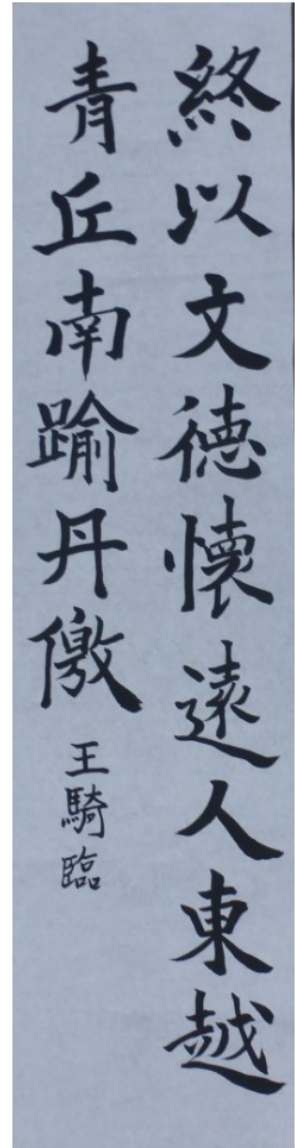 終以文德懷遠人東越
青丘南踰丹儌
王騎臨